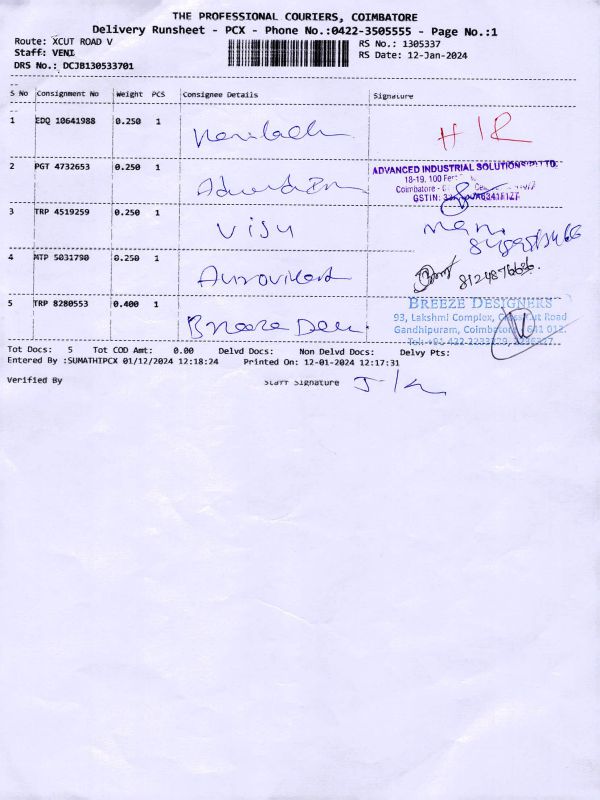 THE PROFESSIONAL COURIERS, COIMBATORE
Delivery Runsheet - PCX - Phone No.:0422-3505555 - Page No.:1
Route: XCUT ROAD V
RS No.: 1305337
Staff: VENI
RS Date: 12-Jan-2024
DRS No.: DCJB130533701
S No Consignment No Weight PCS Consignee Details Signature
1 EDQ 10641988 0.250 1 H/R
2 PGT 4732653 0.250 1
ADVANCED INDUSTRIAL SOLUTIONS
18-19, 100
Coimbatore -
GSTIN:
3 TRP 4519259 0.250 1 Visu
4 MTP 5031790 0.250 1
5 TRP 8280553 0.400 1 Breeze
BREEZE DESIGNERS
93, Lakshmi Complex, Cross Cut Road
Gandhipuram, Coimbatore 641 012.
Tot Docs: 5 Tot COD Amt: 0.00 Delvd Docs: Non Delvd Docs: Delvy Pts:
Entered By :SUMATHIPCX 01/12/2024 12:18:24 Printed On: 12-01-2024 12:17:31
Verified By Staff Signature